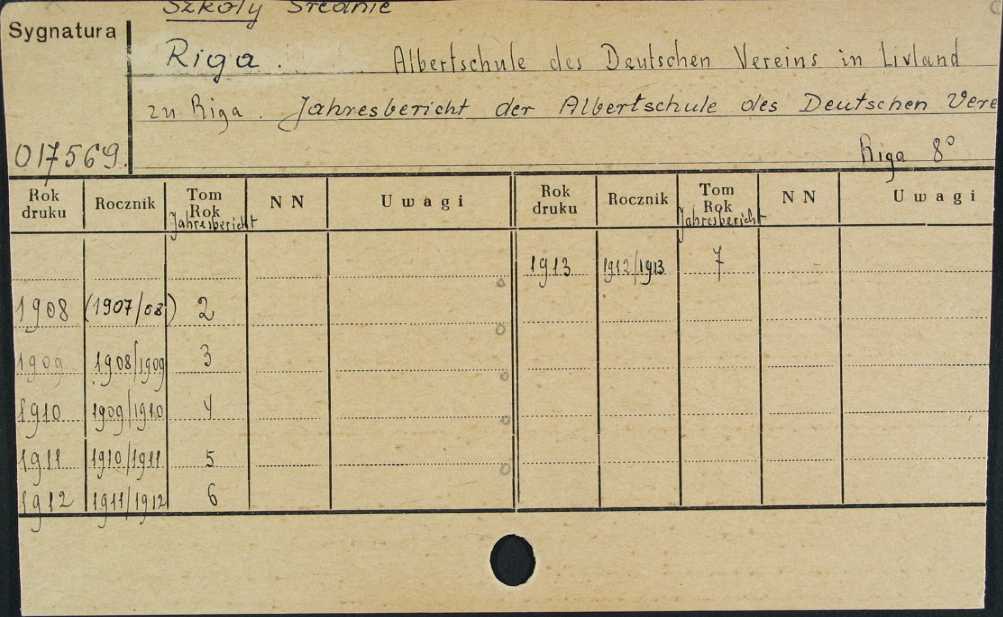 Szkoły Średnie
Sygnatura
Riga. Albertschule des Deutschen Vereins in Livland
zu Riga. Jahresbericht der Albertschule des Deutschen Vere
017569.
Riga 8°
Rok druku Rocznik Tom Rok Jahresbericht NN Uwagi Rok druku Rocznik Tom Rok Jahresbericht NN Uwagi
1913 1912/1913 7
1908 (1907/08) 2
1909 1908/1909 3
1910 1909/1910 4
1911 1910/1911 5
1912 1911/1912 6